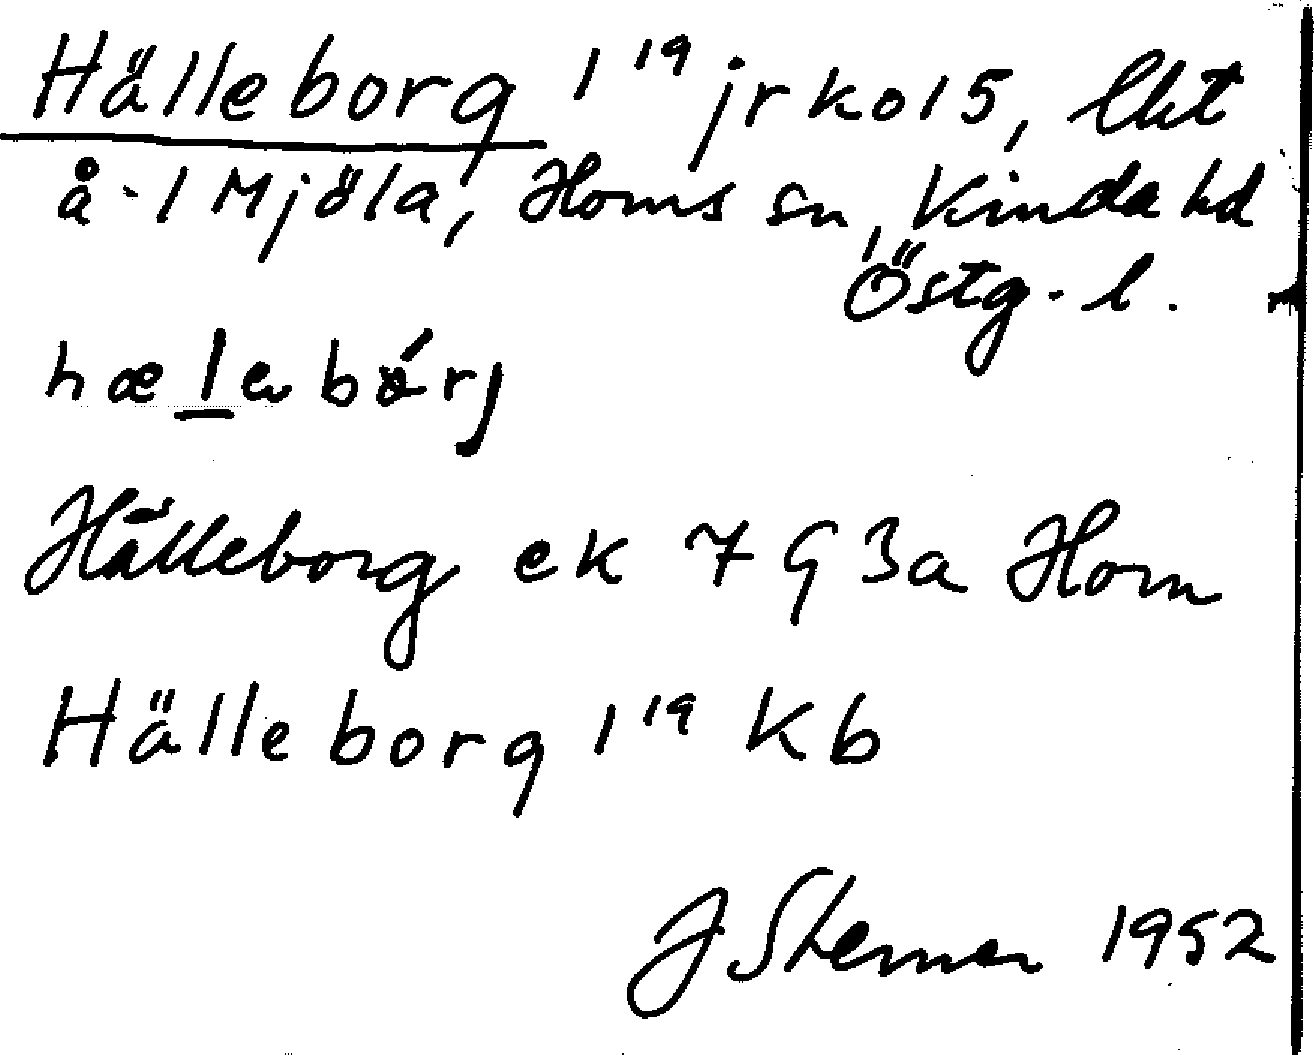 Hälleborg 1 19 jrko15, lht
å-1 Mjöla, Horns sn, Kinda hd
Östg. l.
hælebórj
Hälleborg ek 7 G 3a Horn
Hälleborg 1 19 Kb
J Sterner 1952